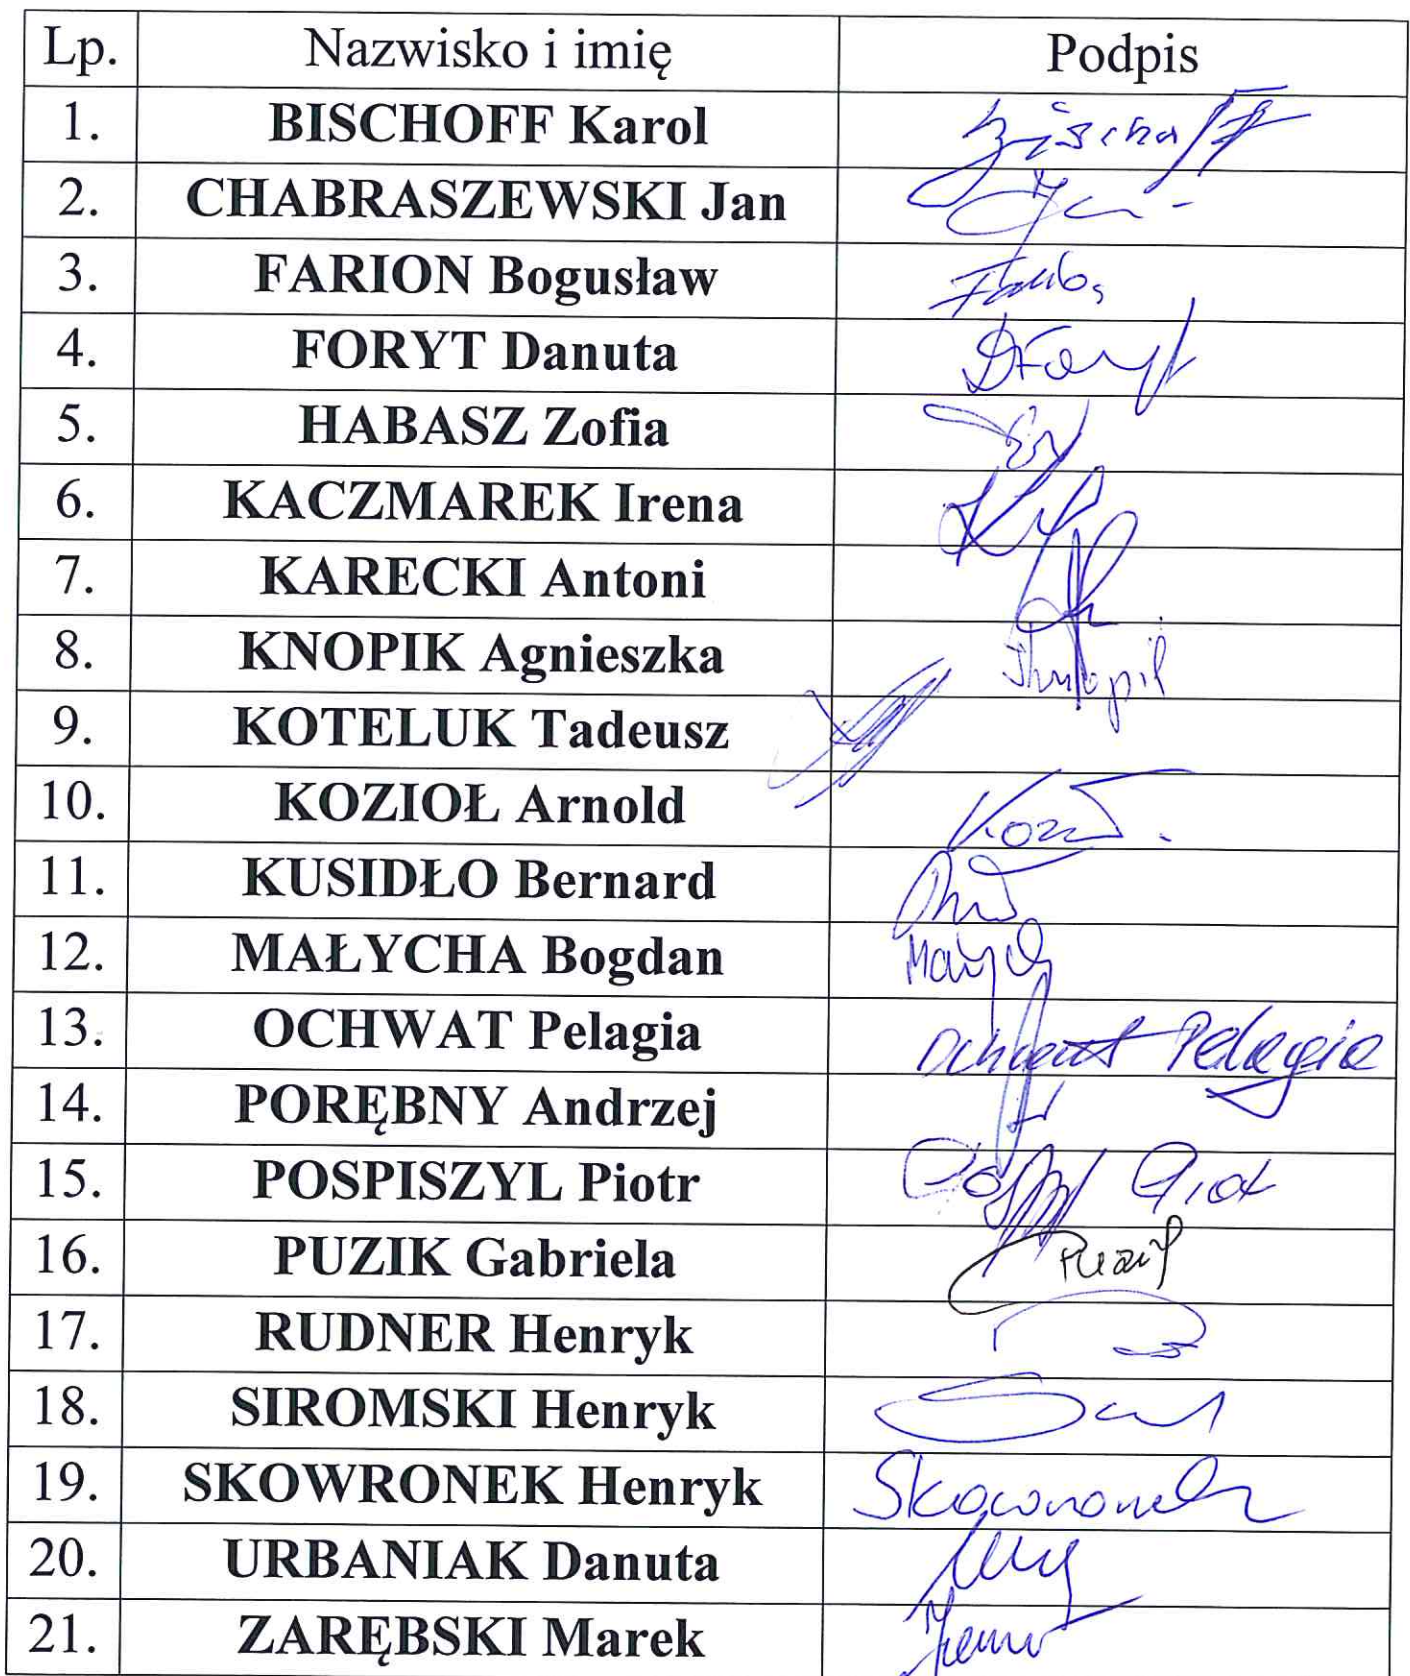 Lp. Nazwisko i imię Podpis
1. BISCHOFF Karol Bischoff
2. CHABRASZEWSKI Jan
3. FARION Bogusław
4. FORYT Danuta DForyt
5. HABASZ Zofia
6. KACZMAREK Irena
7. KARECKI Antoni
8. KNOPIK Agnieszka
9. KOTELUK Tadeusz
10. KOZIOŁ Arnold
11. KUSIDŁO Bernard
12. MAŁYCHA Bogdan
13. OCHWAT Pelagia Ochwat Pelagia
14. PORĘBNY Andrzej
15. POSPISZYL Piotr Piotr
16. PUZIK Gabriela Puzik
17. RUDNER Henryk
18. SIROMSKI Henryk
19. SKOWRONEK Henryk Skowronek
20. URBANIAK Danuta
21. ZARĘBSKI Marek